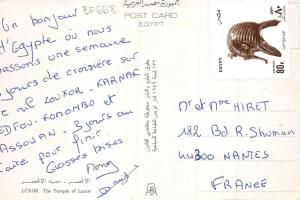 Un bonjour
d'Egypte où nous
passons une semaine
jours de croisière sur
le nil LOUXOR - KARNAK
EDFOU - KOMOMBO et
ASSOUAN - 3 jours au
Caire pour finir.
Grosses bises
BF668
جمهورية مصر العربية
POST CARD
EGYPT
80 P.
Mr et Mme HIRET
182 Bd R. Shuman
44300 NANTES
FRANCE
LUXOR The Temple of Luxor